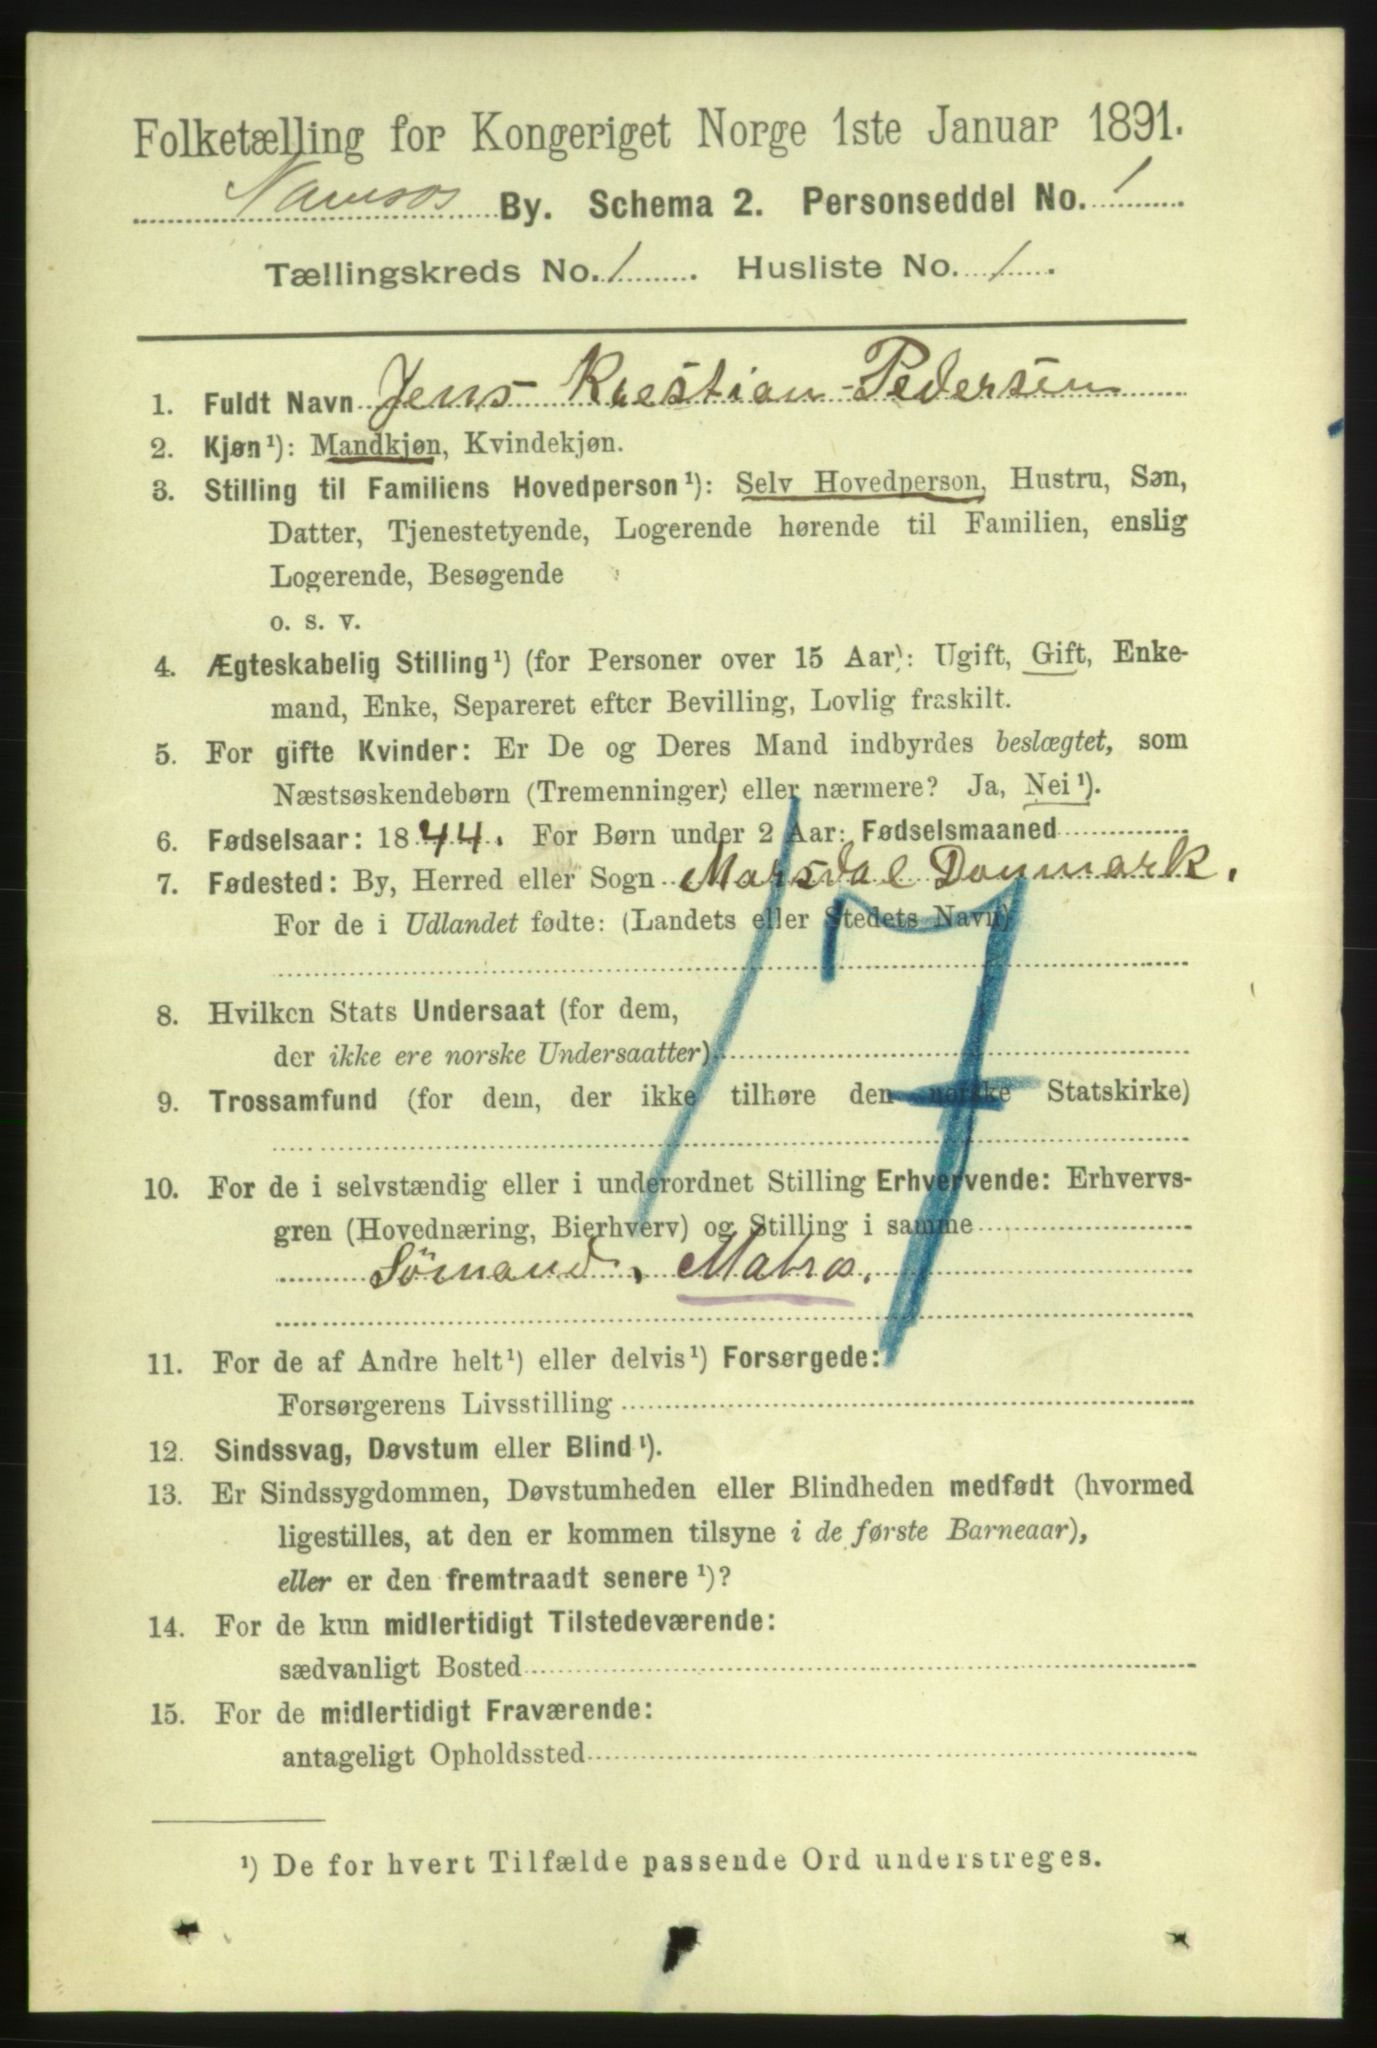 Folketælling for Kongeriget Norge 1ste Januar 1891.
Namsos By. Schema 2. Personseddel No. 1
Tællingskreds No. 1. Husliste No. 1.
1. Fuldt Navn Jens Krestian Pedersen
2. Kjøn¹): Mandkjøn, Kvindekjøn.
3. Stilling til Familiens Hovedperson¹): Selv Hovedperson, Hustru, Søn,
Datter, Tjenestetyende, Logerende hørende til Familien, enslig
Logerende, Besøgende
o. s. v.
4. Ægteskabelig Stilling¹) (for Personer over 15 Aar): Ugift, Gift, Enke-
mand, Enke, Separeret efter Bevilling, Lovlig fraskilt.
5. For gifte Kvinder: Er De og Deres Mand indbyrdes beslægtet, som
Næstsøskendebørn (Tremenninger) eller nærmere? Ja, Nei¹).
6. Fødselsaar: 1844. For Børn under 2 Aar: Fødselsmaaned
7. Fødested: By, Herred eller Sogn Marsdal Danmark.
For de i Udlandet fødte: (Landets eller Stedets Navn)
8. Hvilken Stats Undersaat (for dem,
der ikke ere norske Undersaatter)
9. Trossamfund (for dem, der ikke tilhøre den norske Statskirke)
10. For de i selvstændig eller i underordnet Stilling Erhvervende: Erhvervs-
gren (Hovednæring, Bierhverv) og Stilling i samme
Sömand, Matros.
11. For de af Andre helt¹) eller delvis¹) Forsørgede:
Forsørgerens Livsstilling
12. Sindssvag, Døvstum eller Blind¹).
13. Er Sindssygdommen, Døvstumheden eller Blindheden medfødt (hvormed
ligestilles, at den er kommen tilsyne i de første Barneaar),
eller er den fremtraadt senere¹)?
14. For de kun midlertidigt Tilstedeværende:
sædvanligt Bosted
15. For de midlertidigt Fraværende:
antageligt Opholdssted
¹) De for hvert Tilfælde passende Ord understreges.